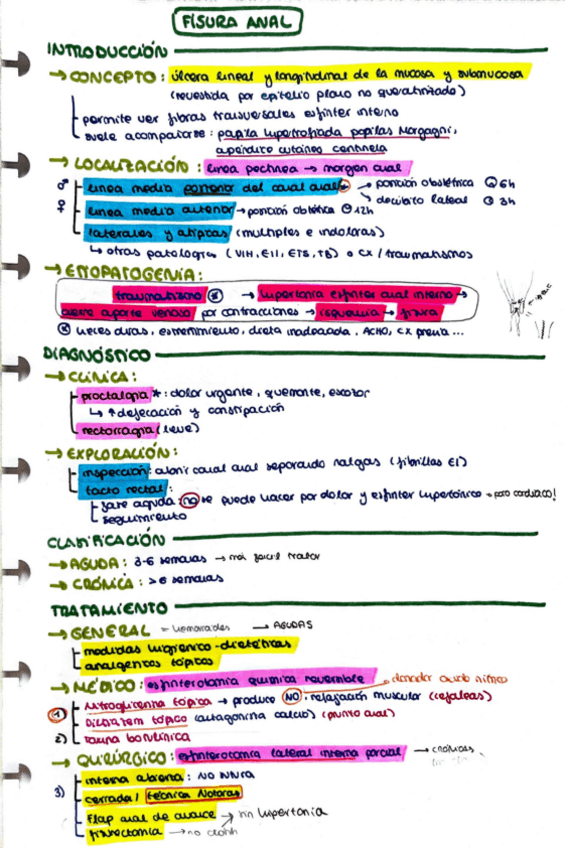 FÍSURA ANAL
INTRODUCCIÓN
→ CONCEPTO: úlcera lineal y longitudinal de la mucosa y submucosa
(revestida por epitelio plano no queratinizado)
permite ver fibras transversales esfínter interno
suele acompañarse: papila hipertrofiada papilas Morgagni,
apéndice cutáneo centinela
→ LOCALIZACIÓN: línea pectínea → margen anal
♂ línea media posterior del canal anal → posición obstétrica 6h
→ decúbito lateral 3h
♀ línea media anterior → posición obstétrica 12h
laterales y atípicas (múltiples e indoloras)
↳ otras patologías (VIH, EII, ETS, TB) o CX / traumatismos
→ ETIOPATOGENIA:
traumatismo * → hipertonía esfínter anal interno →
cierre aporte venoso por contracciones → isquemia → fisura
* heces duras, estreñimiento, dieta inadecuada, ACHO, CX previa ...
DIAGNÓSTICO
→ CLÍNICA:
proctalgia *: dolor urgente, quemante, escozor
↳ ↑ defecación y constipación
rectorragia (leve)
→ EXPLORACIÓN:
inspección: abrir canal anal separando nalgas (fibrillas EI)
tacto rectal:
fase aguda: no se puede hacer por dolor y esfínter hipertónico → paro cardíaco!
seguimiento
CLASIFICACIÓN
→ AGUDA: 3-6 semanas → más fácil tratar
→ CRÓNICA: >6 semanas
TRATAMIENTO
→ GENERAL - hemorroides → AGUDAS
medidas higiénico-dietéticas
analgénicos tópicos
→ MÉDICO: esfinterotomía química reversible → donador ácido nítrico
1) Nitroglicerina tópica → produce NO: relajación muscular (cefaleas)
Diltiazem tópico (antagonista calcio) (prurito anal)
2) Toxina botulínica
→ QUIRÚRGICO: esfinterotomía lateral interna parcial → crónicas
3) interna abierta: NO
cerrada / técnica Notaras
Flap anal de avance → sin hipertonía
fisurectomía → no